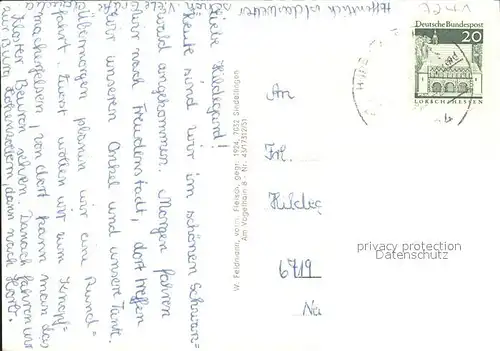 Liebe Hildegard!
Heute sind wir im schönen Schwarz=
wald angekommen. Morgen fahren
wir nach Freudenstadt, dort treffen
wir unseren Onkel und unsere Tante.
Übermorgen planen wir eine Rund=
fahrt. Zuerst wollen wir zum Knopf=
macherfelsen, von dort kann man das
Kloster Beuron sehen. Danach fahren wir
zur Burg Hohenzollern, dann nach
Horb.
Hoffentlich ist das Wetter
schön. Viele Grüße
W. Feldmann, vorm. Fleisch, gegr. 1924, 7032 Sindelfingen
Am Vogelhain 8 · Nr. 43/17312/51
Deutsche Bundespost
20
LORSCH/HESSEN
An
Frl.
Hildeg
6719
privacy protection
Datenschutz